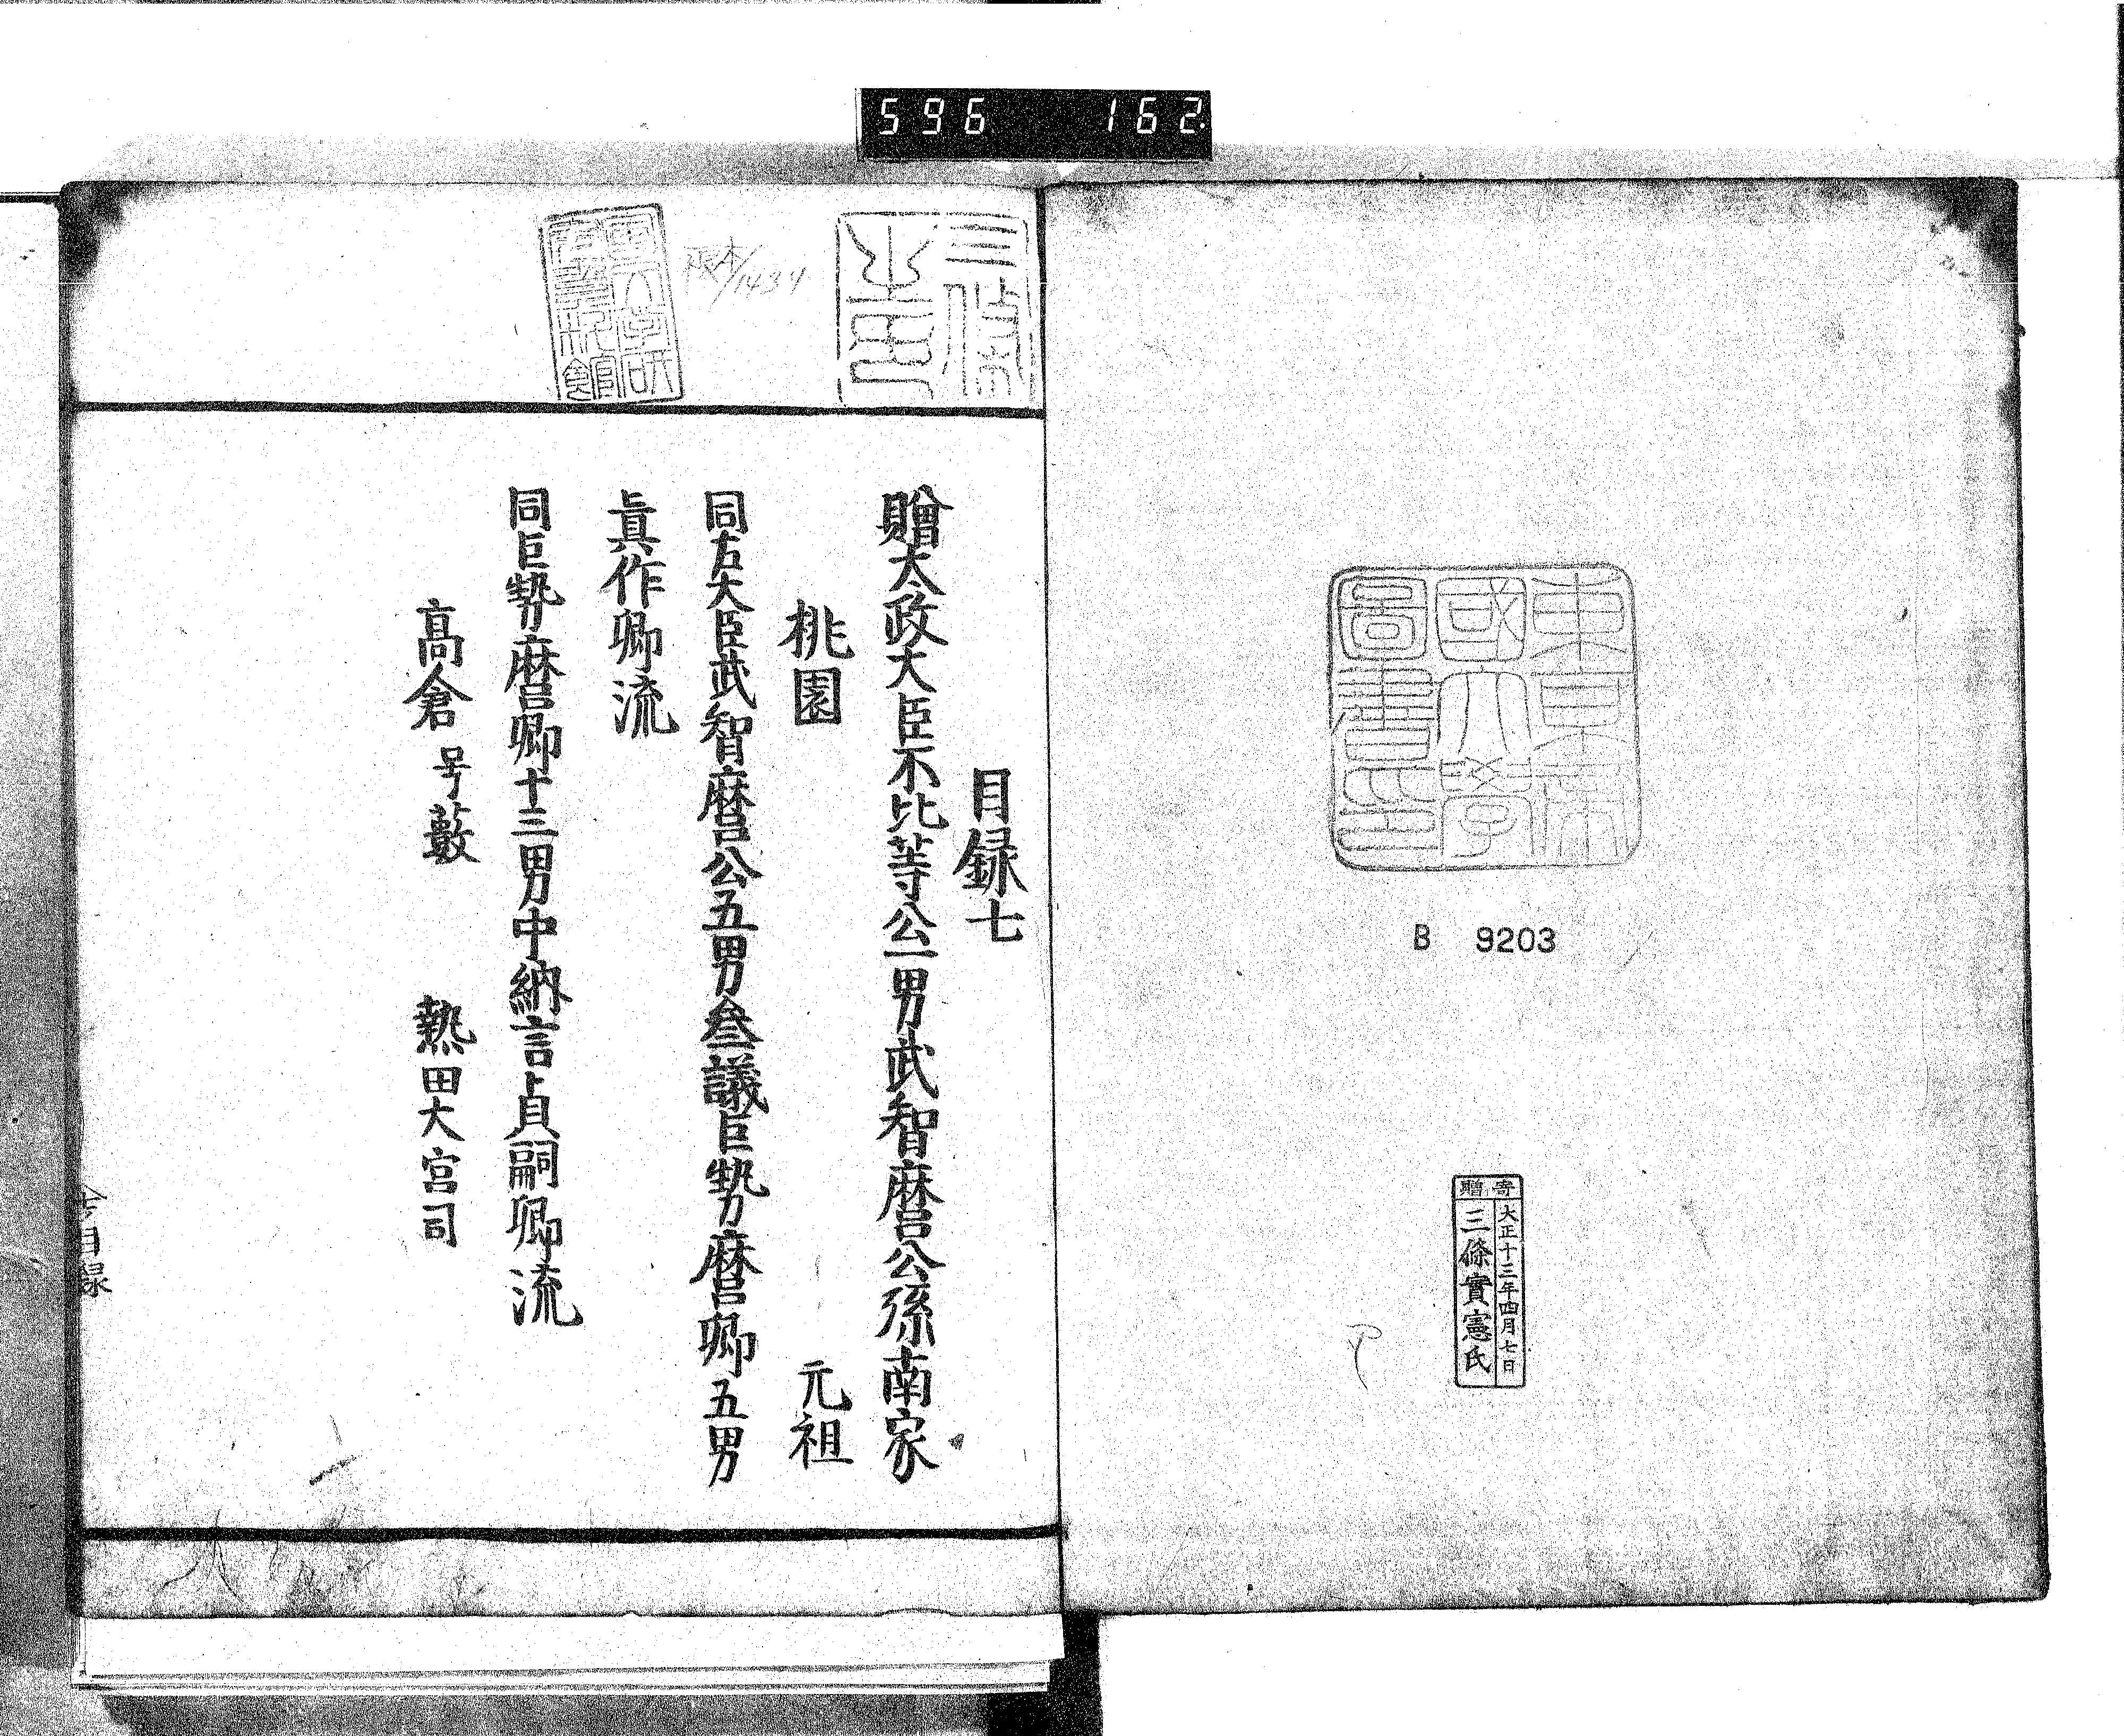 596 162
東京帝
國大學
圖書印
B 9203
寄贈
大正十三年四月七日
三條實憲氏
三條
目録七
贈太政大臣不比等公一男武智麿公孫南家
桃園 元祖
同右大臣武智麿公五男叄議巨勢麿卿五男
眞作卿流
同巨勢麿卿十三男中納言貞嗣卿流
髙倉 号藪 熱田大宮司
目録